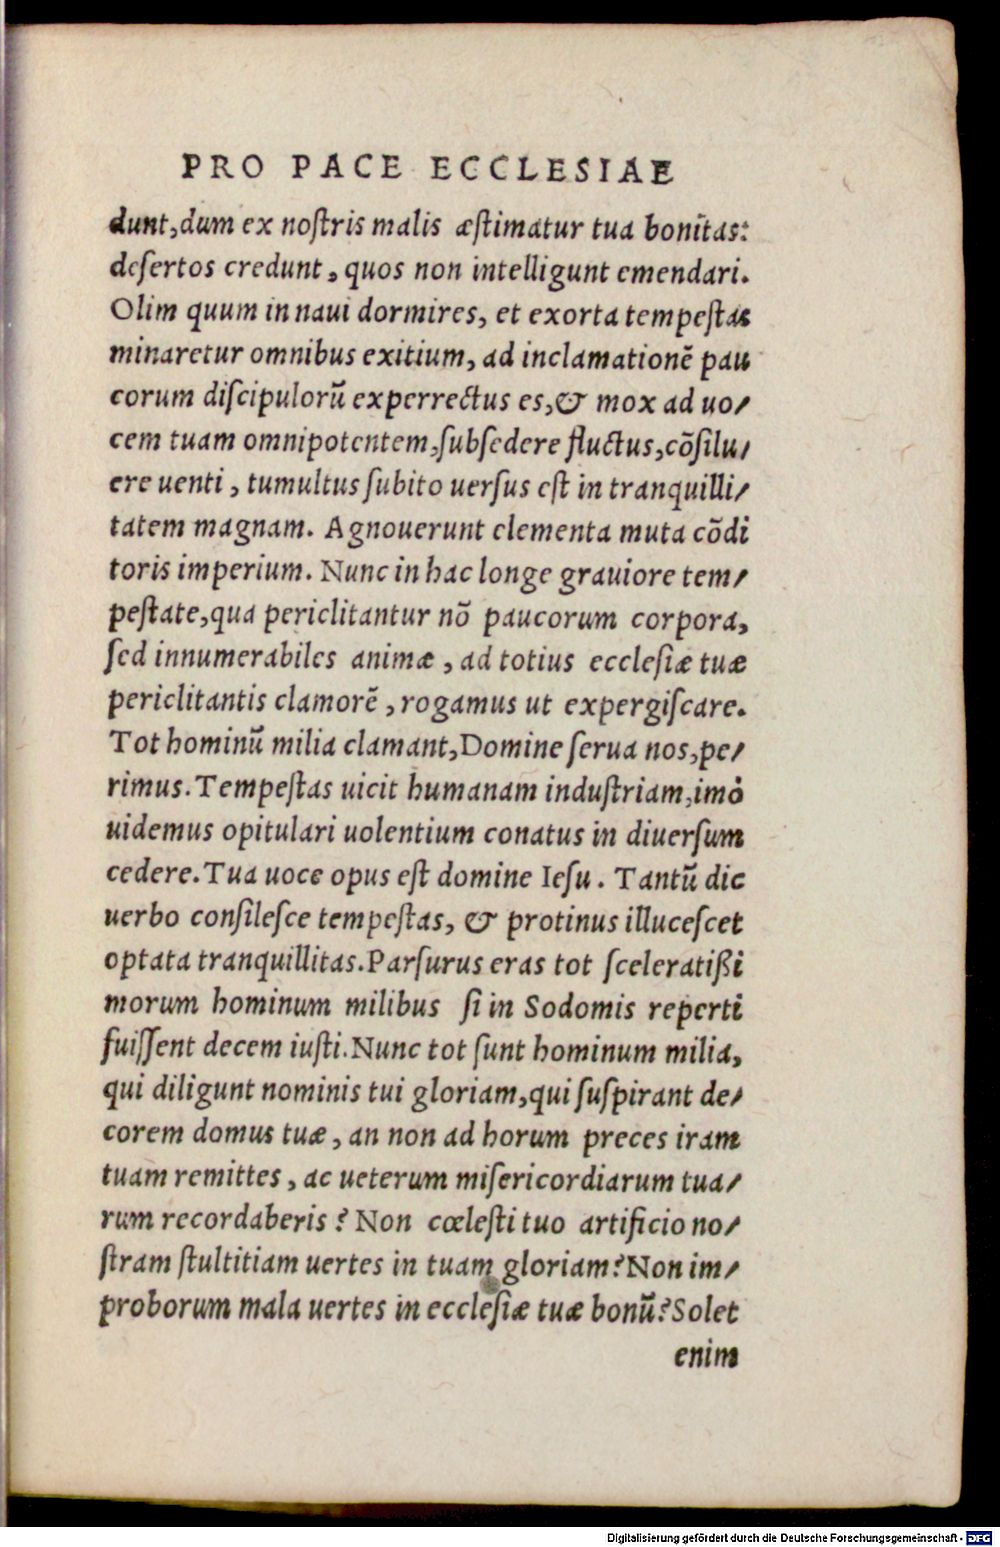 PRO PACE ECCLESIAE
dunt,dum ex noſtris malis æſtimatur tua bonĩtas:
deſertos credunt, quos non intelligunt emendari.
Olim quum in naui dormires, et exorta tempeſtas
minaretur omnibus exitium, ad inclamationẽ pau
corum diſcipulorũ experrectus es,& mox ad uo⸗
cem tuam omnipotentem,ſubſedere fluctus,cõſilu⸗
ere uenti, tumultus ſubito uerſus eſt in tranquilli⸗
tatem magnam. Agnouerunt elementa muta cõdi
toris imperium. Nunc in hac longe grauiore tem⸗
peſtate,qua periclitantur nõ paucorum corpora,
ſed innumerabiles animæ, ad totius eccleſiæ tuæ
periclitantis clamorẽ, rogamus ut expergiſcare.
Tot hominũ milia clamant,Domine ſerua nos,pe⸗
rimus.Tempeſtas uicit humanam induſtriam,imò
uidemus opitulari uolentium conatus in diuerſum
cedere.Tua uoce opus eſt domine Ieſu. Tantũ dic
uerbo conſileſce tempeſtas, & protinus illuceſcet
optata tranquillitas.Parſurus eras tot ſceleratißi
morum hominum milibus ſi in Sodomis reperti
fuiſſent decem iuſti.Nunc tot ſunt hominum milia,
qui diligunt nominis tui gloriam,qui ſuſpirant de⸗
corem domus tuæ, an non ad horum preces iram
tuam remittes, ac ueterum miſericordiarum tua⸗
rum recordaberis? Non cœleſti tuo artificio no⸗
ſtram ſtultitiam uertes in tuam gloriam?Non im⸗
proborum mala uertes in eccleſiæ tuæ bonũ?Solet
enim
Digitalisierung gefördert durch die Deutsche Forschungsgemeinschaft - DFG